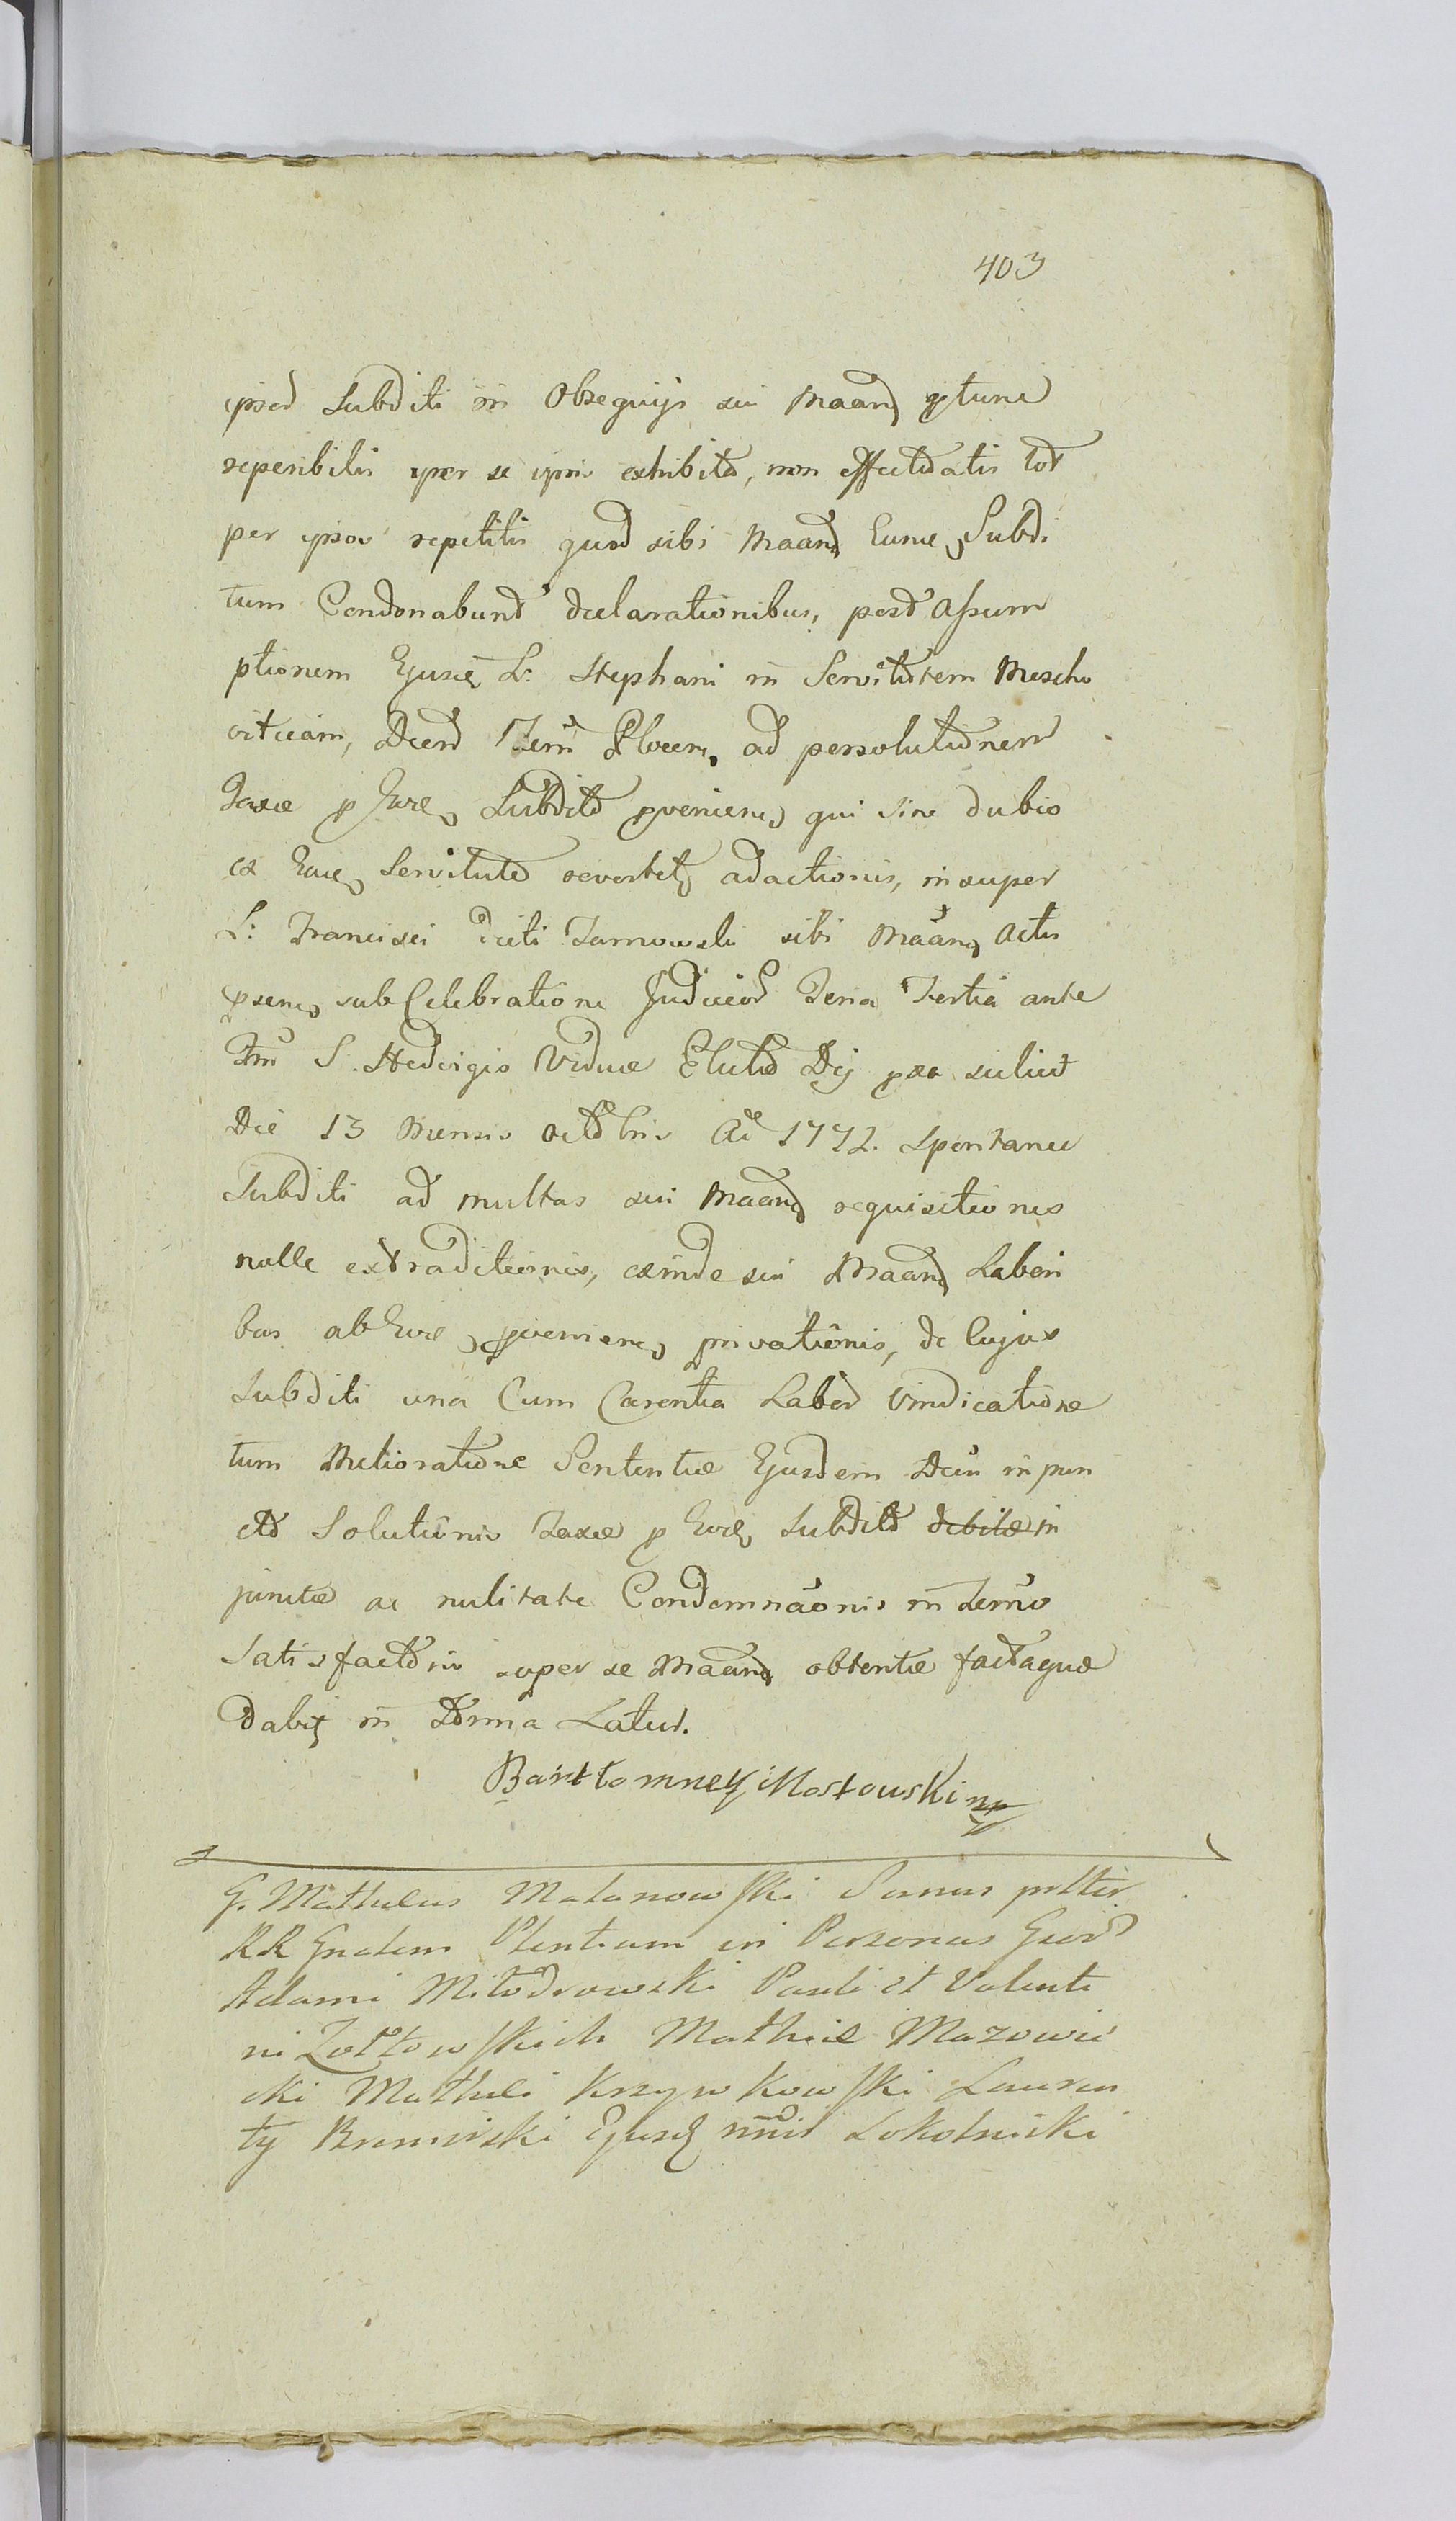 403
ipsos Subditi in Obsequijs sui Maand ptunc
reperibilis per se ipsis exhibito, non effectuatis tot
per ipsos repetitis quod sibi Maand Eunc Subdi
tum Condonabunt declarationibus, post assum
ptionem Ejusd L: Stephani in Servitutem Moscho
viticam, Decrd Terr Plocen, ad persolutionem
Taxæ p Eore Subdito pvenien qui sine dubio
ex Eace Servitute revertet adactionis, insuper
L: Francisci dicti Tarnowski sibi Maand Actis
psen sub Celebratione Judicior Feria Tertia ante
Ftm S. Hedvigis Viduæ Elutd Dej pxa scilicet
Die 13 Mensis octobris Ad 1772. spontaneæ
Subditi ad multas sui Maand requisitiones
nullæ extraditionis, exinde sui Maand Labori
bus ab Eore pvenien privationis, de Cujus
Subditi una Cum Carentia Labor Vindicatione
tum Melioratione Sententiæ Ejusdem Dciu in pun
cto Solutionis Taxæ p Eore Subdito debitæ in
junctæ ac nulitate Condemnãonis in Termõ
Satisfactoris super se Maand obtentæ factaque
dabit in Tmno Latur.
Barttomiey Mostowski mp
G. Mathæus Matanowski Sunus pltter
RR Gndem Plentium in Personas Gror
Adami Mitodrowski Pauli et Valenti
ni Zottowskich Mathiæ Mazowie
cki Mathei Krzywkowski Lauren
ty Bromirski Ejusd Lokotnicki